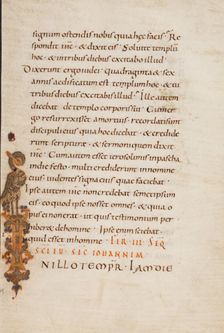 signum ostendis nobis quia haec facis Res
pondit ihc & dixit eis Solvite templu
hoc & intribus diebus excitabo illud
Dixerunt ergo iudei quadraginta & sex
annis aedificatum est templum hoc & tu
tribus diebus excitabis illud Ille autem
dicebat de templo corporis sui Cum er
go resurrexiss& amortuis recordati sunt
discipuli eius quia hoc dicebat & credide
runt scripturae & sermoni quem dixit
ihc Cum autem esset ierosolimis inpascha
indie festo multi crediderunt innomine
eius videntes signa eius quae faciebat
Ipse autem ihc non credebat semetipsum
eis eo quod ipse nosset omnes & quia o
pus ei non erat ut quis testimonium per
hiberet dehomine Ipse enim sciebat
quid esset inhomine FER III SEQ
SCI EU SEC IOHANNEM
IN ILLO TEMPR IAM DIE